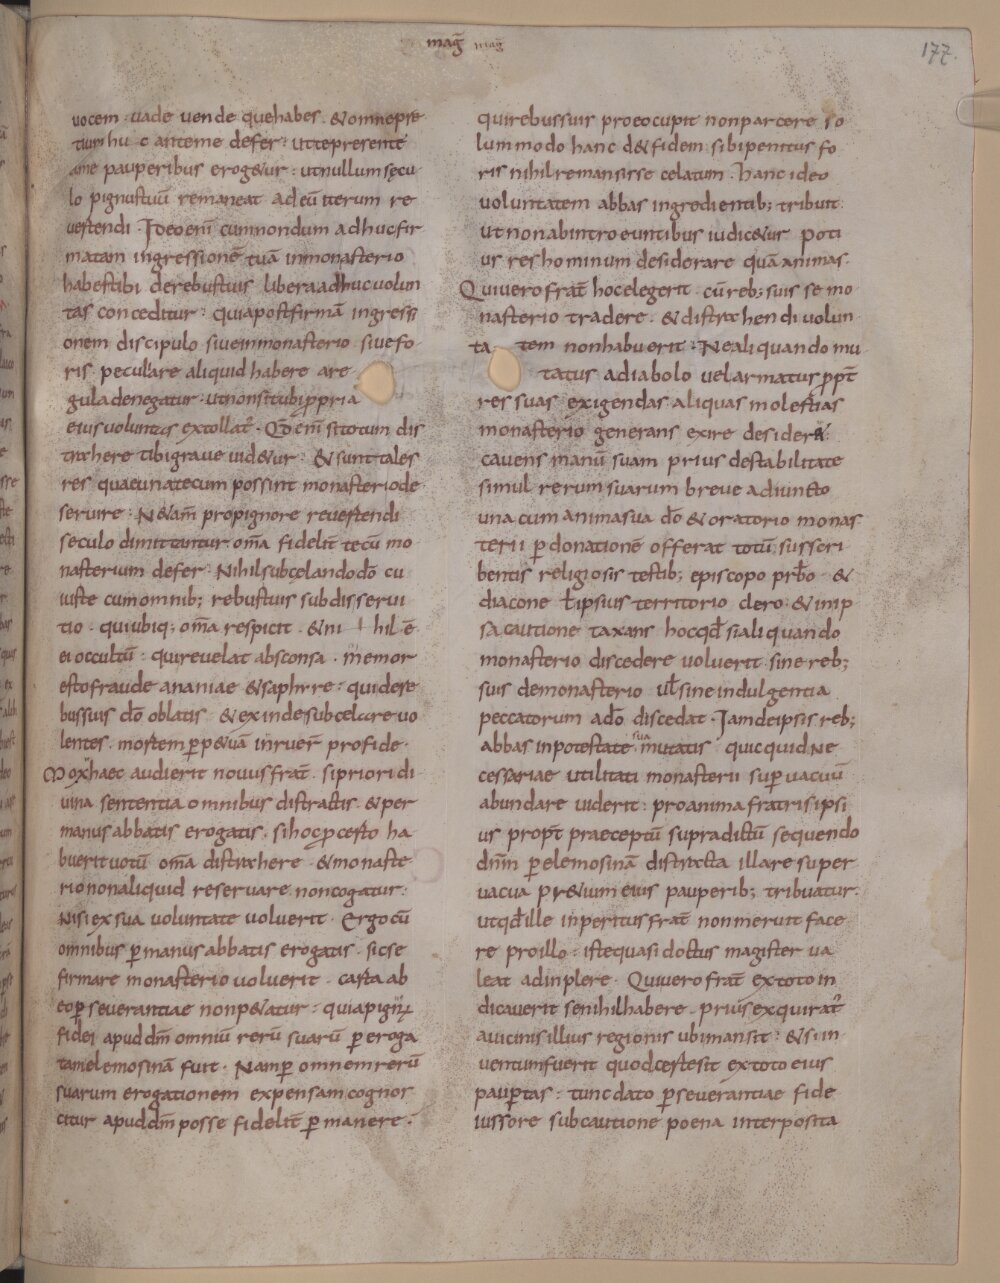 mag̅ mag̅
177
uocem · uade uende quehabes · &omnepre
tium hu c anteme defer · uttepresente
ame pauperibus erog&ur · utnullumsęcu
lo pignustuū remaneat adeū iterum re
uestendi · Ideoenī cumnondum adhucfir
matam ingressionē tuā inmonasterio
habestibi derebustuis liberaadhucuolun
tas conceditur · quiapostfirmā ingress
onem discipulo siueinmonasterio siuefo
ris peculiare aliquid habere are
guladenegatur · utnonsitubipropria
eiusuoluntas extollat̄ · Qd̄enī sitotum dis
trahere tibigraue uid&ur · &sunttales
res quaeunatecum possint monasteriode
seruire · N&am̄ propignore reuestendi
seculo dimittantur om̄a fidelit̄ tecū mo
nasterium defer · Nihilsubcelandodō cu
iuste cumomnib; rebustuis subdisserui
tio · quiubiq; om̄a respicit · &ni hil ē
ei occultū · quireuelat absconsa · memor
estofraude ananiae &saphrre · quidere
bussuis dō oblatis &exindesubcelare uo
lentes · mortem p̱p&uā inruer̄ profide ·
Moxhaec audierit nouusfrat̄ · sipriori di
uina sententia omnibus distractis · &per
manusabbatis erogatis · sihocp̱cesto ha
buerituotū om̄a distrahere · &monaste
riononaliquid reseruare noncogatur ·
Nisi exsua uoluntate uoluerit · Ergocū
omnibus p̱manusabbatis erogatis · sicse
firmare monasterio uoluerit · casta ab
eop̱seuerantiae nonp&atur · quiapign̄
fidei apuddm̄ omniū rerū suarū p̱eroga
tamelemosinam fuit · Namp̱ omnemrerū
suarum erogationem expensam cognos
citur apuddm̄ posse fidelit̄ p̱manere ·
quirebussuis proeocupit nonparcere so
lummodo hanc d&fidem sibipenitus fo
ris nihilremansisse celatum · hanc ideo
uoluntatem abbas ingredientib; tribuit
utnonabintroeuntibus iudic&ur poti
us reshominum desiderare quā animas ·
Quiuerofrat̄ hocelegerit · cūreb;suis se mo
nasterio tradere · &distrahendi uolun
ta tem nonhabuerit · Nealiquando mu
tatus adiabolo uelarmatus p̱p̄t
res suas exigendas aliquas molestias
monasterio generans exire desider&
cauens manū suam prius destabilitate
simul rerum suarum breue adiuncto
una cum animasua dō &oratorio monas
terii p̱donationē offerat totū susscri
bentis religiosis testib; episcopo prb̄o · &
diacone t̄ipsius territorio clero · &inip
sa cautione taxans hocqd̄sialiquando
monasterio discedere uoluerit sine reb;
suis demonasterio ul̄sineindulgentia
peccatorum adō discedat · Iamdeipsis reb;
abbas inpotestate sua mutatis quicquidNe
cessariae utilitati monasterii sup̱uacuū
abundare uiderit · proanima fratrisipsi
us prop̄t praeceptū supradictū sequendo
dn̄m p̱elemosinā distracta illare super
uacua pr&iumeius pauperib; tribuatur ·
utqd̄ille inperitusfrat̄ nonmeruit face
re proillo · istequasi doctus magister ua
leat adinplere · Quiuerofrat̄ extotoin
dicauerit senihilhabere · priusexquirat̄
auicinisillius regionis ubimansit · &siin
uentumfuerit quodcestesit extotoeius
paup̱tas · tunc dato p̱seuerantiae fide
iussore subcautione poena interposita